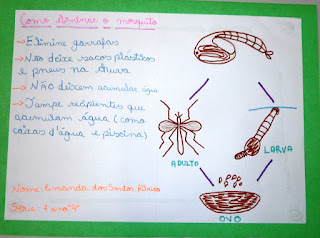 Como eliminar o mosquito
→ Elimine garrafas
→ Não deixe sacos plásticos
e pneus na chuva
→ NÃO deixem acumular água
→ Tampe recipientes que
acumulam água (como
caixas d'água e piscina)
ADULTO
LARVA
OVO
Nome: dos Santos
Série: 7 ano "A"